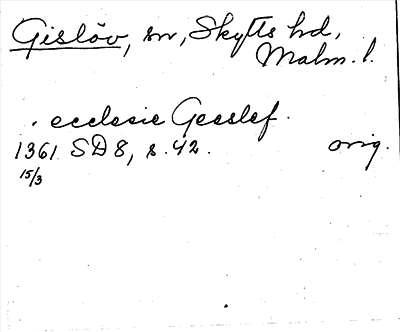 Gislöv, sn, Skytts hd,
Malm. l.
. ecclesie Geeslef.
1361 SD 8, s. 42. orig.
15/3